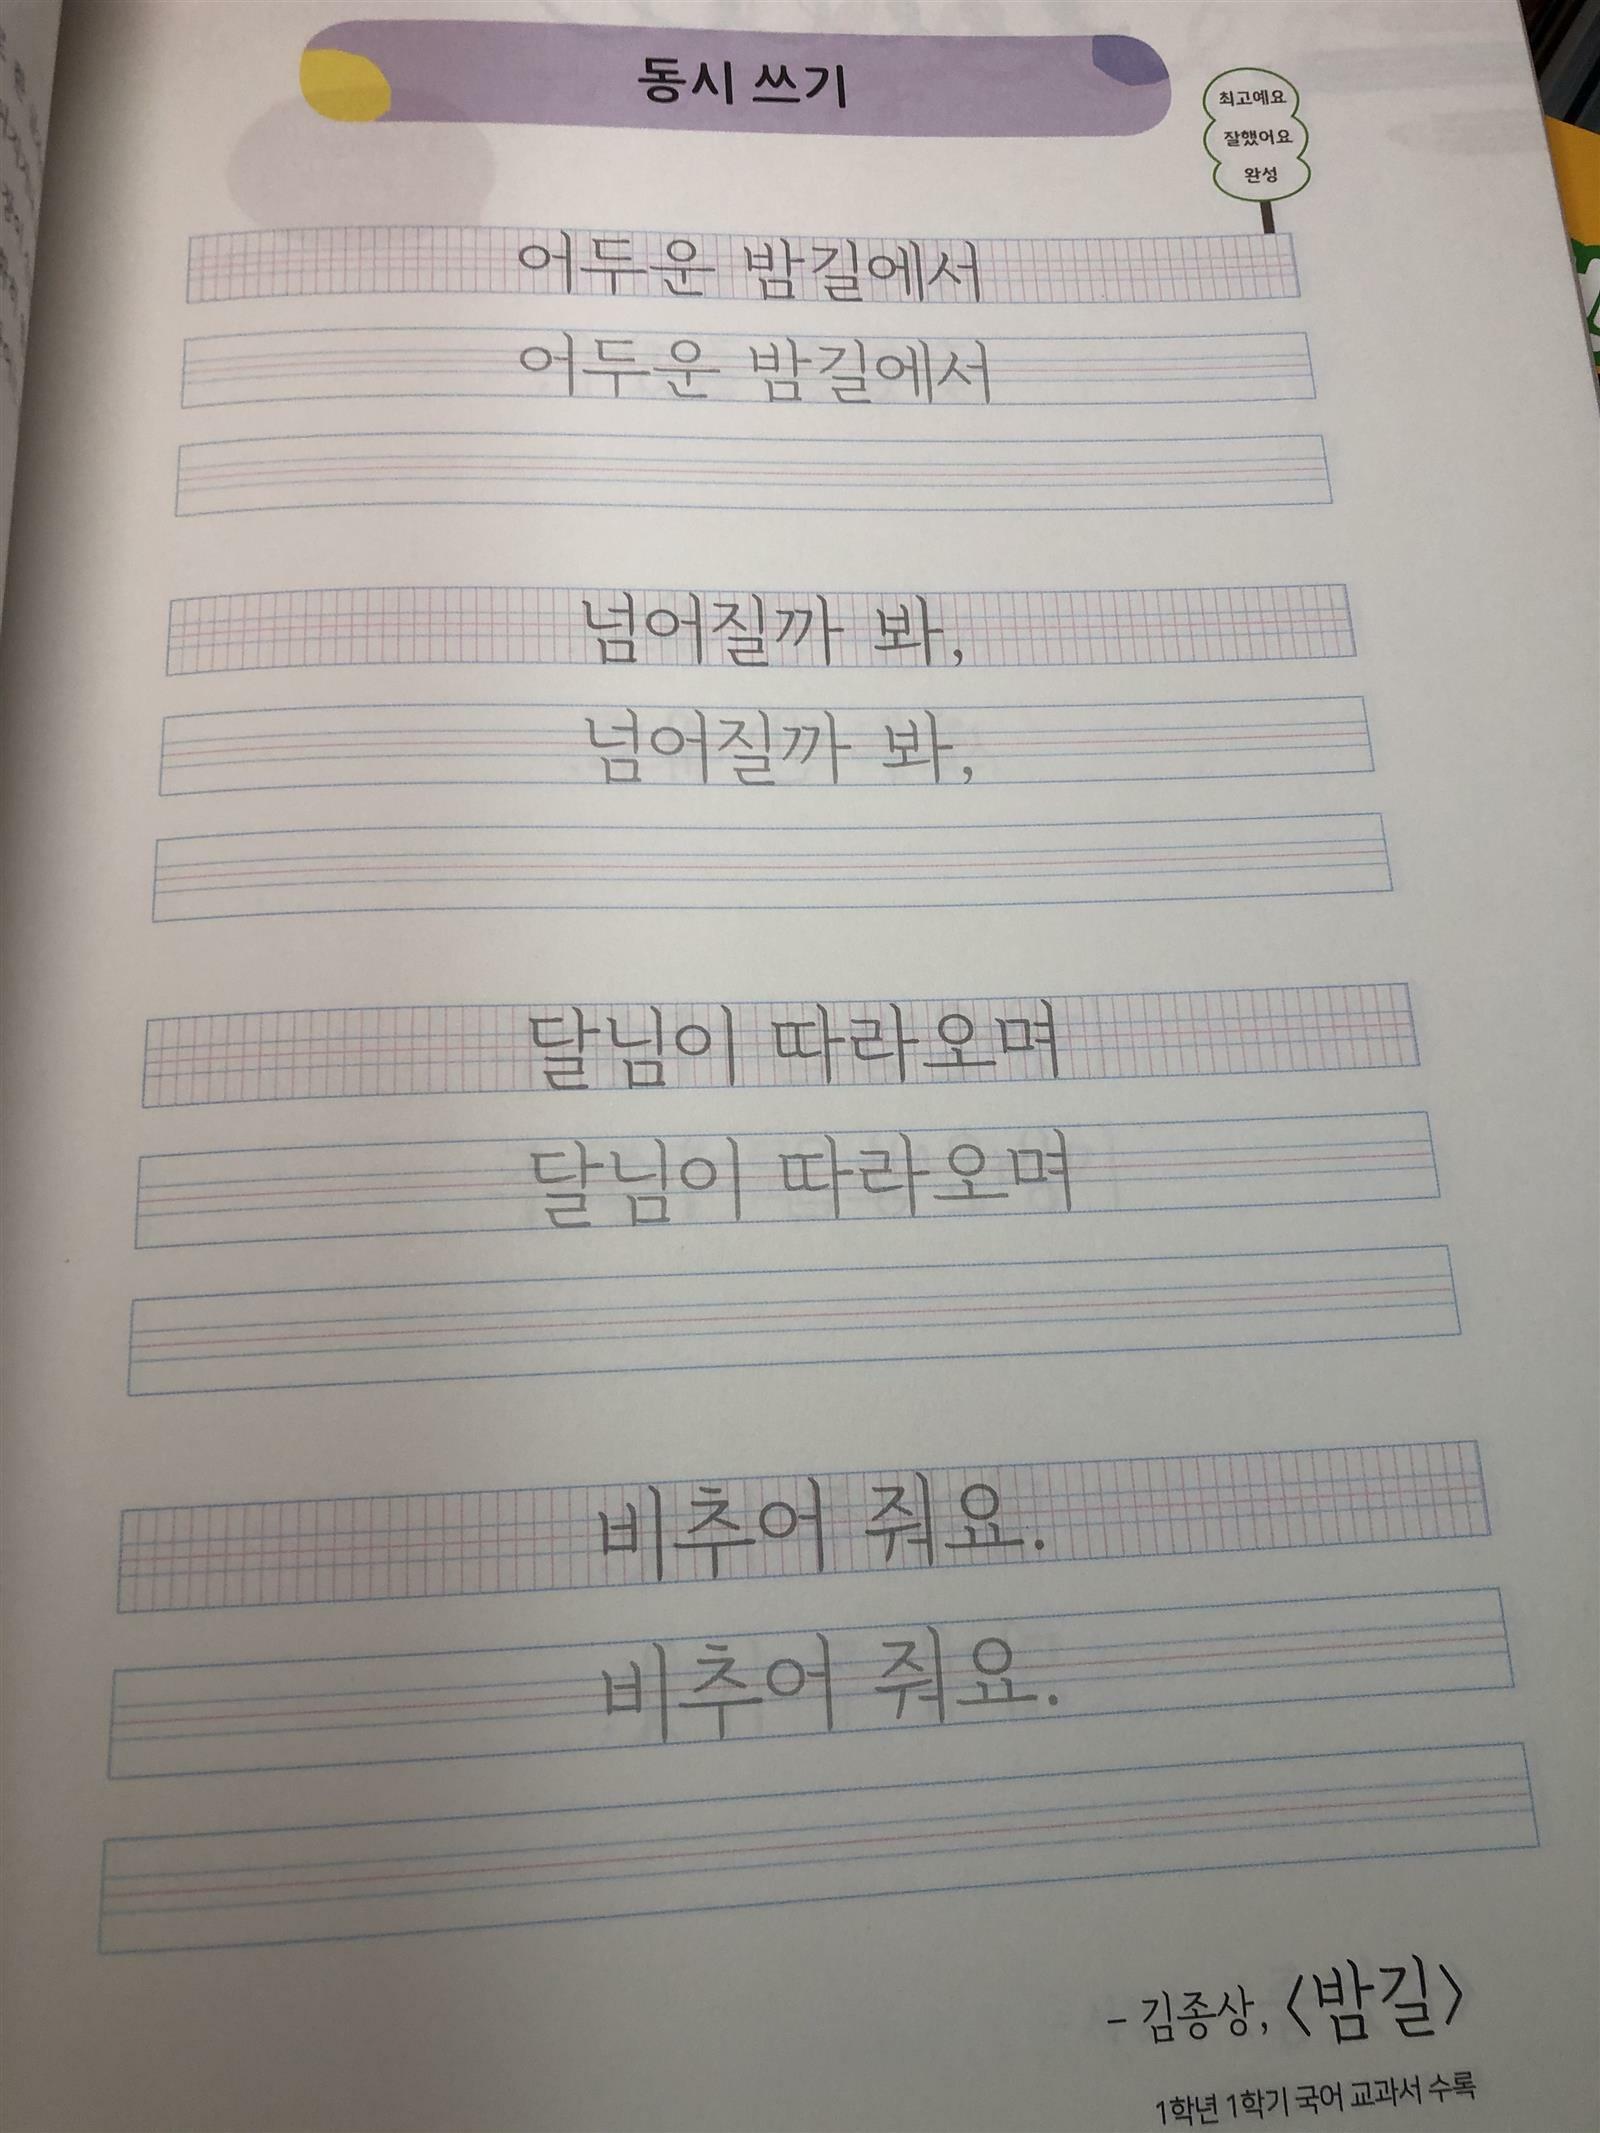 동시 쓰기
최고예요
잘했어요
완성
어두운 밤길에서
어두운 밤길에서
넘어질까 봐,
넘어질까 봐,
달님이 따라오며
달님이 따라오며
비추어 줘요.
비추어 줘요.
- 김종상, 〈밤길〉
1학년 1학기 국어 교과서 수록